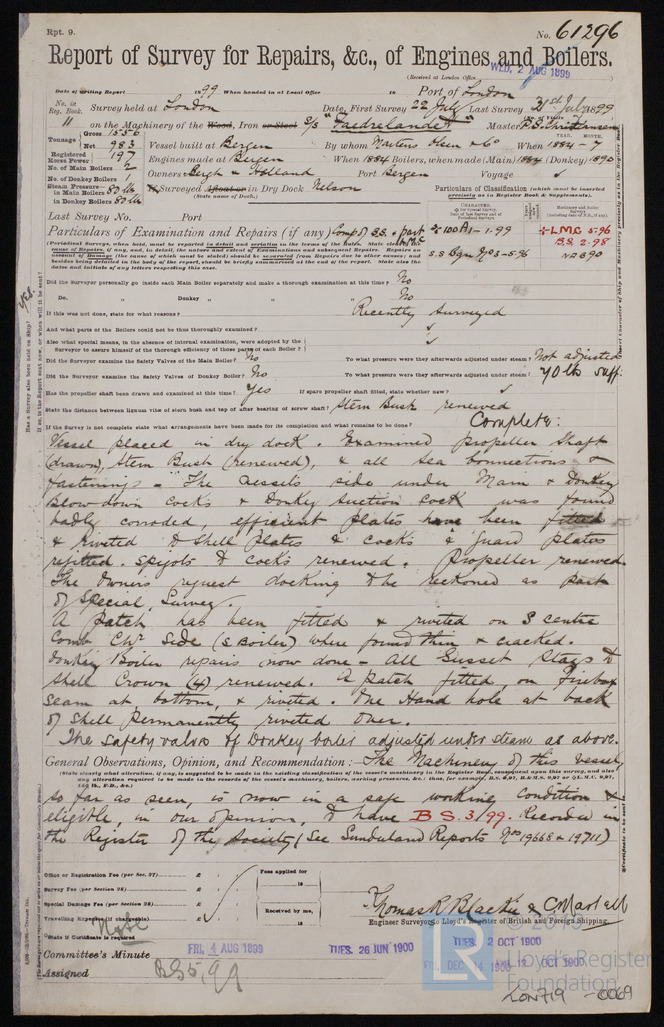 Rpt. 9.
No. 61296
Report of Survey for Repairs, &c., of Engines and Boilers.
(Received at London Office
WED. 2 AUG 1899
Date of writing Report 1899 When handed in at Local Office 10 Port of London
No. in Reg. Book. Survey held at London Date, First Survey 22 July Last Survey 31st July 1899
11 on the Machinery of the Wood, Iron or Steel S/S "Faedrelandet" Master P.S. Christensen
Tonnage Gross 1556
Net 983 Vessel built at Bergen By whom Martens Olsen & Co When 1884-7
Registered Horse Power 197 Engines made at Bergen When 1884 Boilers, when made (Main) 1884 (Donkey) 1890
No. of Main Boilers 2 Owners Bergh & Helland Port Bergen Voyage
No. of Donkey Boilers 1
Steam Pressure in Main Boilers 80 lb If Surveyed Afloat or in Dry Dock Nelson
in Donkey Boilers 80 lb (State name of Dock.)
Particulars of Classification (which must be inserted precisely as in Register Book & Supplements).
Last Survey No. Port
Particulars of Examination and Repairs (if any) Comp of B.S. & part L.M.C.
100A1-1.99
LMC 5-96
B.S. 2.98
S.S. Bgn No3-5-96
NDB90
(Periodical Surveys, when held, must be reported in detail and seriatim in the terms of the Rules. State clearly the cause of Repairs, if any, and, in detail, the nature and extent of Examinations and subsequent Repairs. Repairs on account of Damage (the cause of which must be stated) should be separated from Repairs due to other causes; and besides being detailed in the body of the report, should be briefly summarised at the end of the report. State also the dates and initials of any letters respecting this case.)
Did the Surveyor personally go inside each Main Boiler separately and make a thorough examination at this time? No
Do. " Donkey " " " No
If this was not done, state for what reasons? Recently Surveyed
And what parts of the Boilers could not be thus thoroughly examined?
Also what special means, in the absence of internal examination, were adopted by the
Surveyor to assure himself of the thorough efficiency of those parts of each Boiler?
Did the Surveyor examine the Safety Valves of the Main Boiler? No To what pressure were they afterwards adjusted under steam? Not adjusted
Did the Surveyor examine the Safety Valves of Donkey Boiler? No To what pressure were they afterwards adjusted under steam? 70 lb suff:
Has the propeller shaft been drawn and examined at this time? Yes If spare propeller shaft fitted, state whether new?
State the distance between lignum vitæ of stern bush and top of after bearing of screw shaft? Stern Bush renewed
If the Survey is not complete state what arrangements have been made for its completion and what remains to be done? Complete:
Vessel placed in dry dock. Examined propeller shaft
(drawn), Stern Bush (renewed), & all Sea Connections &
fastenings - The Vessels side under Main & Donkey
Blow down cocks & Donkey suction cock was found
badly corroded, efficient plates have been fitted
& riveted to Shell Plates & cocks & guard plates
refitted. Spigots to cocks renewed. Propeller renewed.
The Owners request docking to be reckoned as part
of Special Survey.
A Patch has been fitted & riveted on S centre
Comb Chr Side (S Boiler) where found thin & cracked.
Donkey Boiler repairs now done - All Gusset Stays to
Shell Crown (4) renewed. A patch fitted, on firebox
seam at bottom, & riveted. One Hand hole at back
of shell permanently riveted over.
The Safety valves of Donkey boiler adjusted under steam as above.
General Observations, Opinion, and Recommendation:- The Machinery of this vessel,
(State clearly what alteration, if any, is suggested to be made in the existing classification of the vessel's machinery in the Register Book, consequent upon this survey, and also
so far as seen, is now in a safe working condition &
eligible, in our opinion, to have B S. 3/99. Recorded in
the Register of the Society (See Sunderland Reports Nos 19668 & 19711)
Office or Registration Fee (per Sec. 27) £
Survey Fee (per Section 28) £
Special Damage Fee (per Section 28) £
Travelling Expenses (if chargeable) £
Fees applied for
Received by me,
State if Certificate is required
Thomas R Blackie &
Engineer Surveyor to Lloyd's Register of British and Foreign Shipping.
Committee's Minute
FRI. 4 AUG 1899
TUES. 26 JUN 1900
TUES. 2 OCT 1900
Assigned
LR
Lloyd's Register
Foundation
LON719-0069